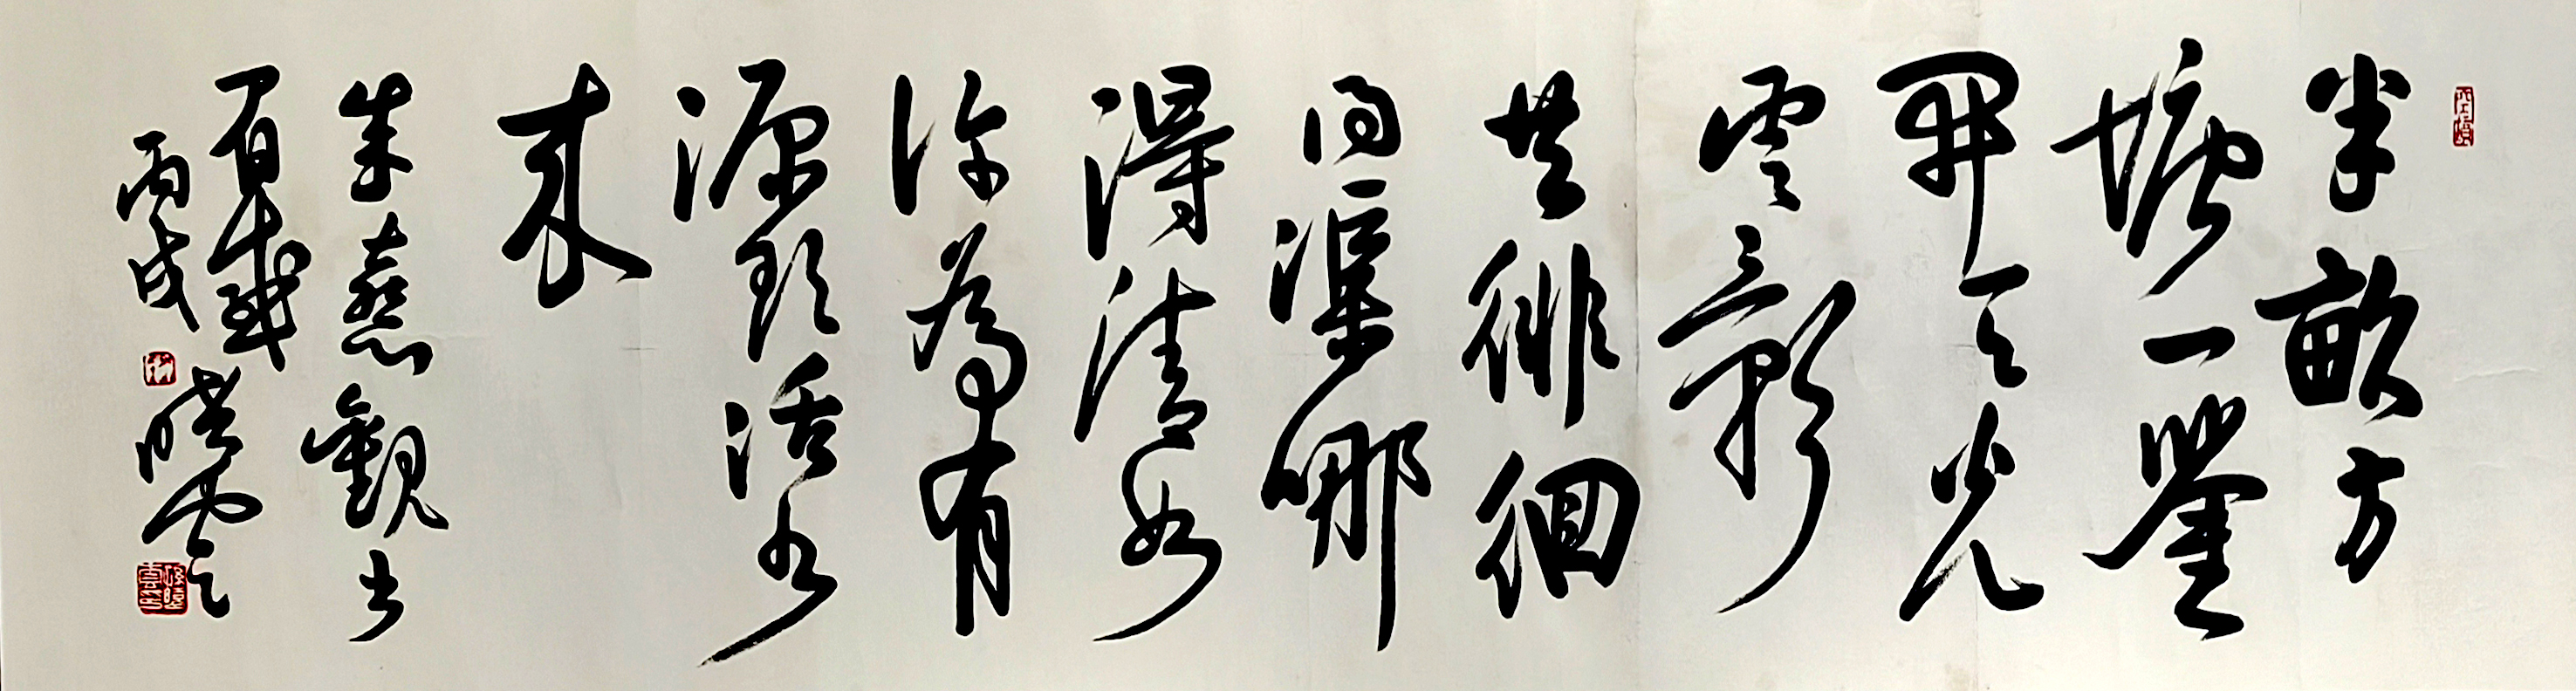 半畝方
塘一鑒
開天光
雲影
共徘徊
問渠哪
得清如
許為有
源頭活水
來
朱熹觀書
有感
丙戌 曉雲